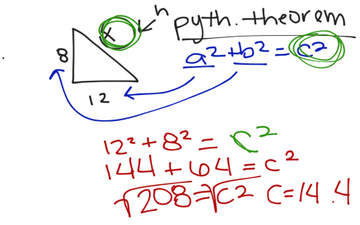 h
pyth. theorem
x
8
a² + b² = c²
12
12² + 8² = c²
144 + 64 = c²
√208 = √c² c = 14.4